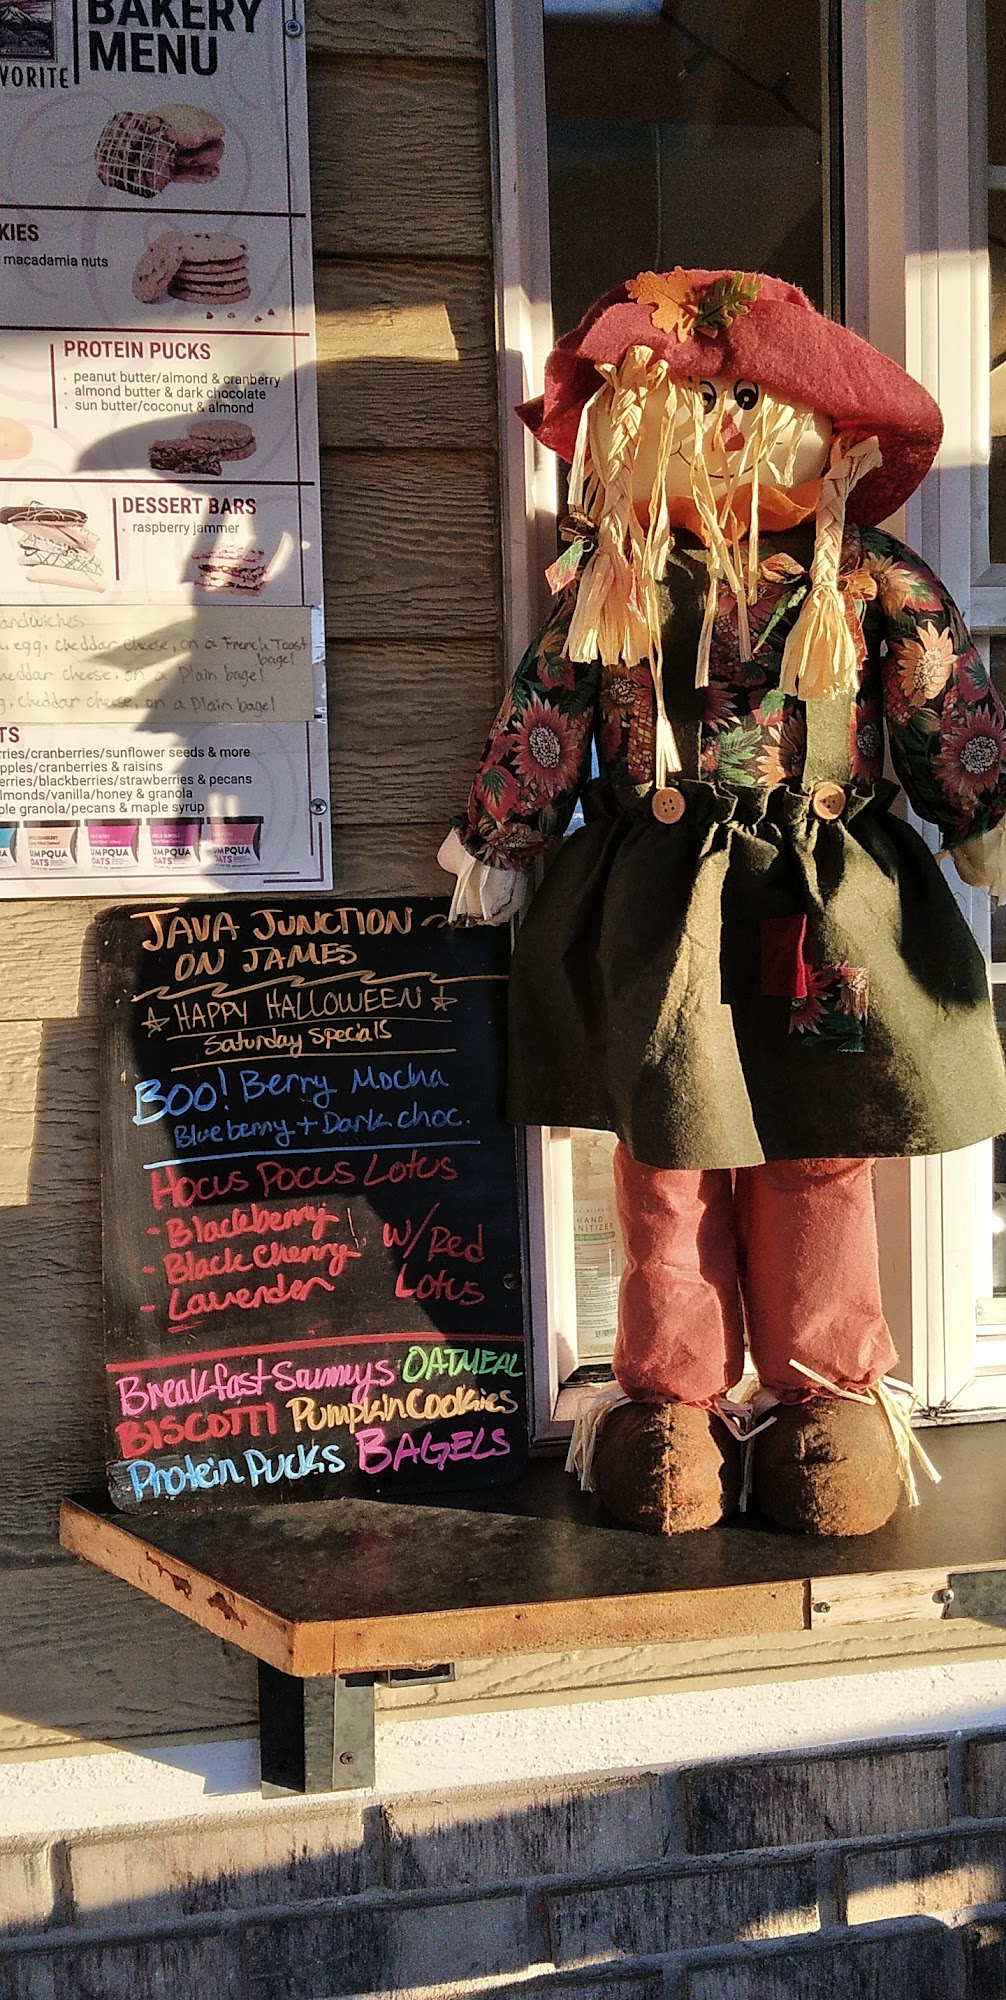 BAKERY
MENU
VORITE
KIES
macadamia nuts
PROTEIN PUCKS
. peanut butter/almond & cranberry
. almond butter & dark chocolate
. sun butter/coconut & almond
DESSERT BARS
. raspberry jammer
andwiches
egg, cheddar cheese, on a French Toast
bagel
eddar cheese, on a Plain bagel
g, cheddar cheese, on a Plain bagel
TS
rries/cranberries/sunflower seeds & more
pples/cranberries & raisins
erries/blackberries/strawberries & pecans
lmonds/vanilla/honey & granola
ple granola/pecans & maple syrup
UMPQUA UMPQUA UMPQUA UMPQUA
OATS OATS OATS OATS
JAVA JUNCTION ~
ON JAMES
HAPPY HALLOWEEN
Saturday Specials
BOO! Berry Mocha
Blueberry + Dark choc.
Hocus Pocus Lotus
- Blackberry
- Black Cherry w/Red
- Lavender Lotus
Breakfast Sammys OATMEAL
BISCOTTI Pumpkin Cookies
Protein Pucks BAGELS
HAND
NITIZER